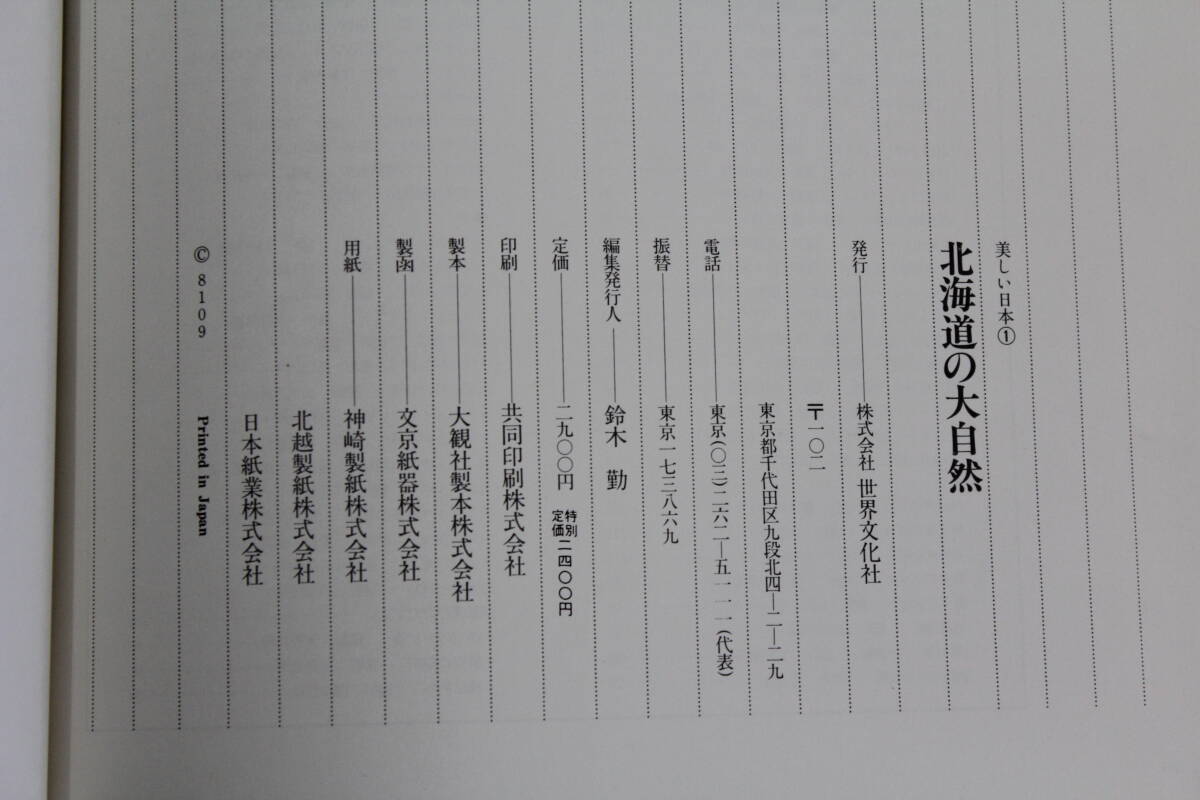 美しい日本①
北海道の大自然
発行――株式会社 世界文化社
〒一〇二
東京都千代田区九段北四―二―二九
電話――東京(〇三)二六二―五一一一(代表)
振替――東京一七三八六九
編集発行人――鈴木 勤
定価――二九〇〇円 特別定価二四〇〇円
印刷――共同印刷株式会社
製本――大観社製本株式会社
製函――文京紙器株式会社
用紙――神崎製紙株式会社
北越製紙株式会社
日本紙業株式会社
© 8109 Printed in Japan